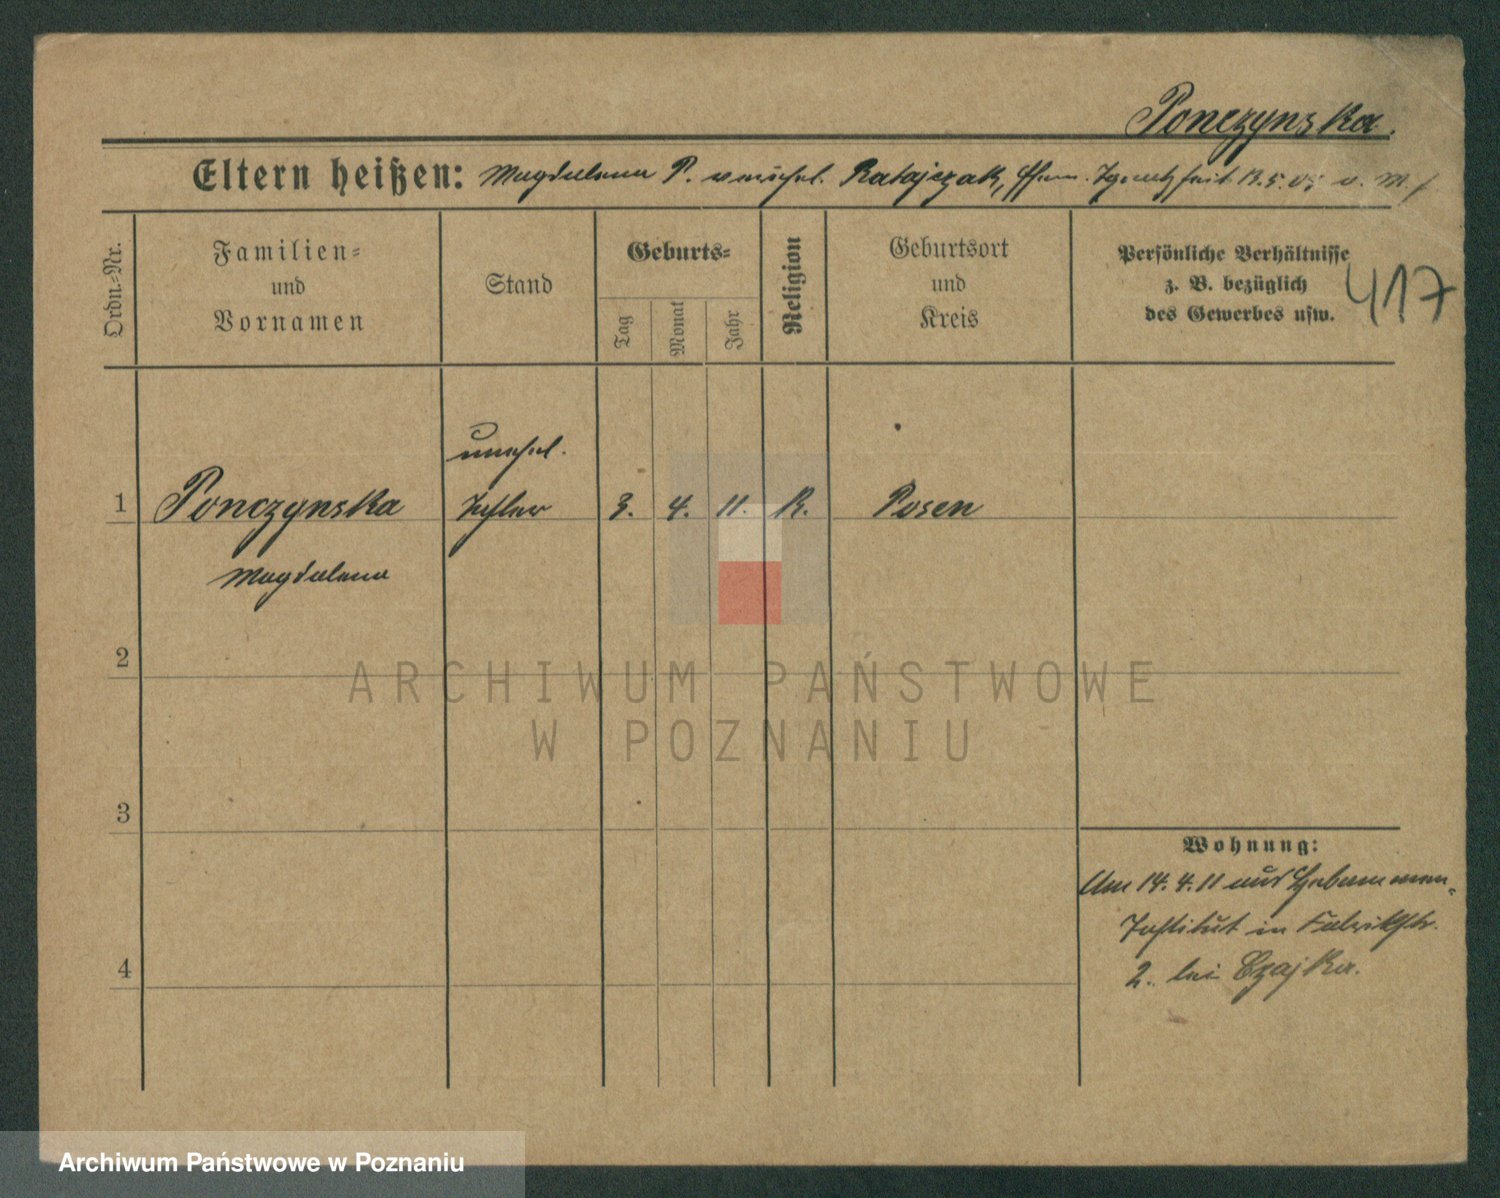 Ponczynska.
Eltern heißen: Magdalena P. verehel. Ratajczak,
Ordn.=Nr.
Familien=
und
Vornamen
Stand
Geburts=
Tag
Monat
Jahr
Religion
Geburtsort
und
Kreis
Persönliche Verhältnisse
z. B. bezüglich
des Gewerbes usw.
417
unehel.
1 Ponczynska Tochter 3. 4. 11. K. Posen
Magdalena
2
3
4
Wohnung:
Am 14.4.11 aus Hebammen-
Institut in Fabrikstr.
2. bei Czajka.
ARCHIWUM PAŃSTWOWE
W POZNANIU
Archiwum Państwowe w Poznaniu